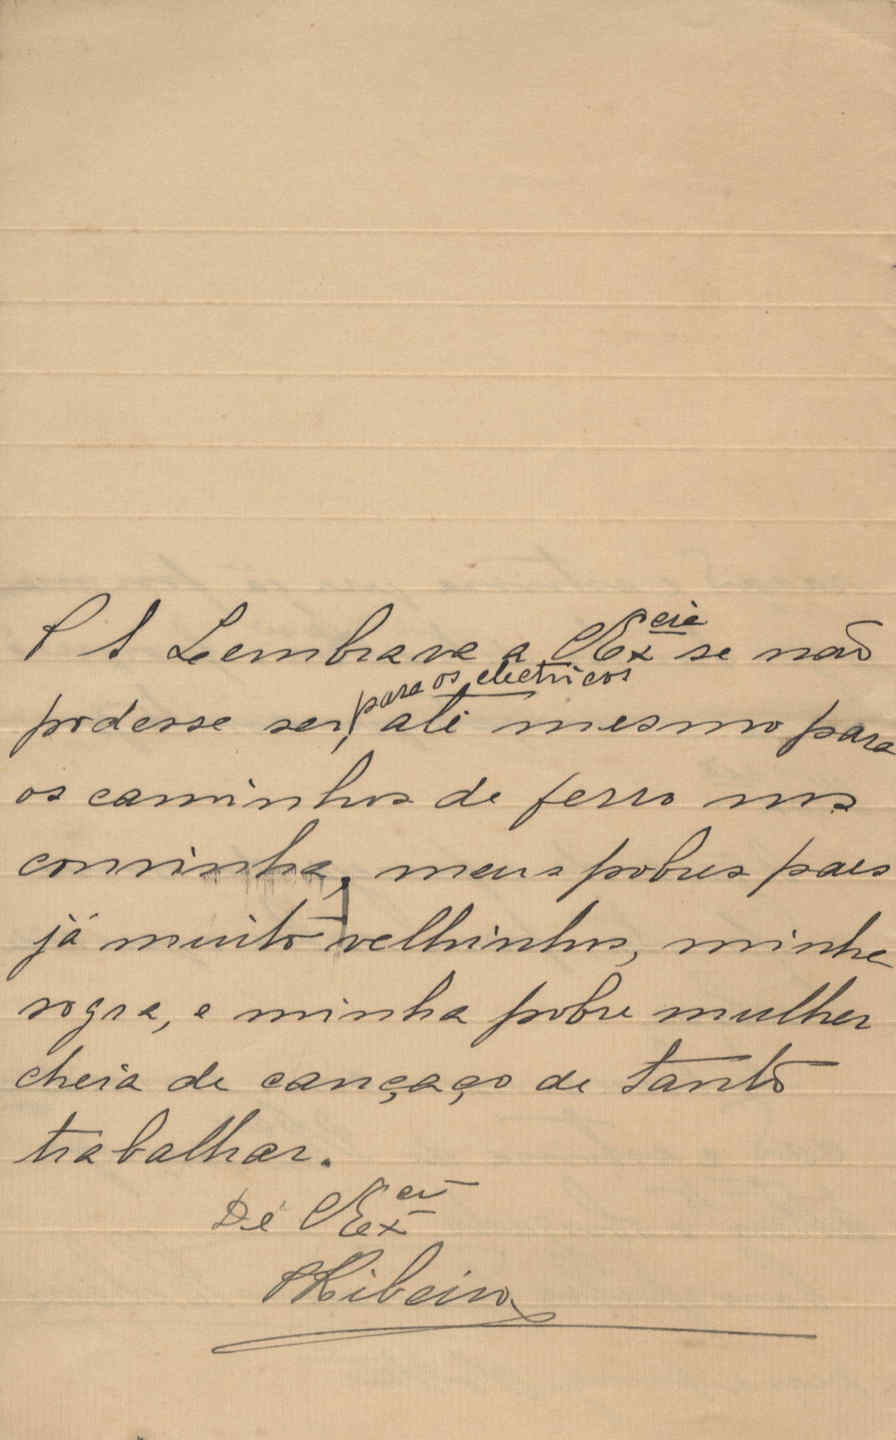 P S Lembrava a V Ex.cia se não
para os electricos
podesse ser, até mesmo para
os caminhos de ferro nos
convinha, meus pobres paes
já muito velhinhos, minha
sogra, e minha pobre mulher
cheia de cançaço de tanto
trabalhar.
De V Ex.cia
Ribeiro